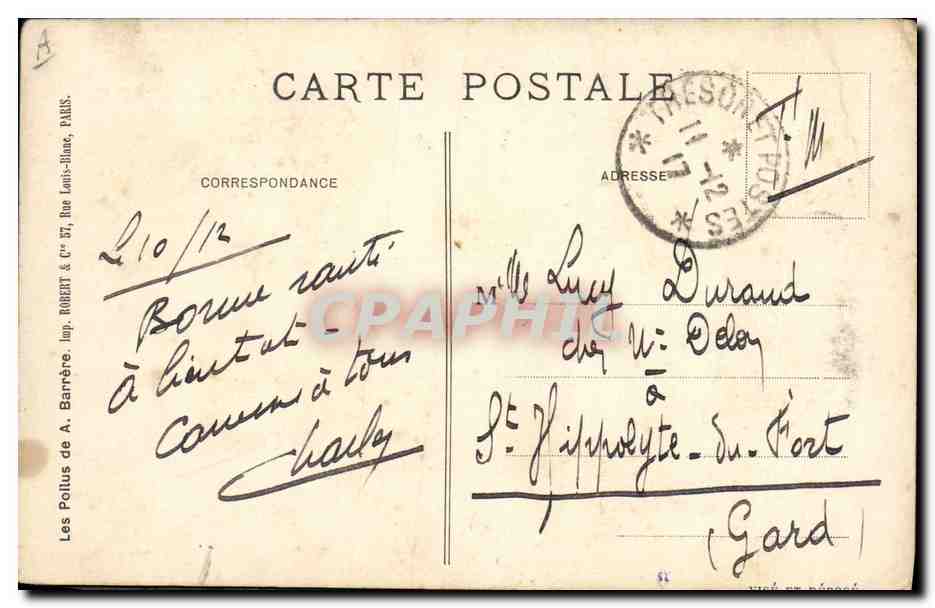 A
CARTE POSTALE
TRESOR ET POSTES
11 -12
17
F. M
CORRESPONDANCE
ADRESSE
Le 10/12
Bonne santé
à bientot -
à tous
Charley
Mlle Lucy Durand
chez Mr
à
St. Hippolyte-du-Fort
(Gard)
CPAPHIL
Les Poilus de A. Barrère. Imp. ROBERT & Cie 57, Rue Louis-Blanc, PARIS.
VISÉ ET DÉPOSÉ